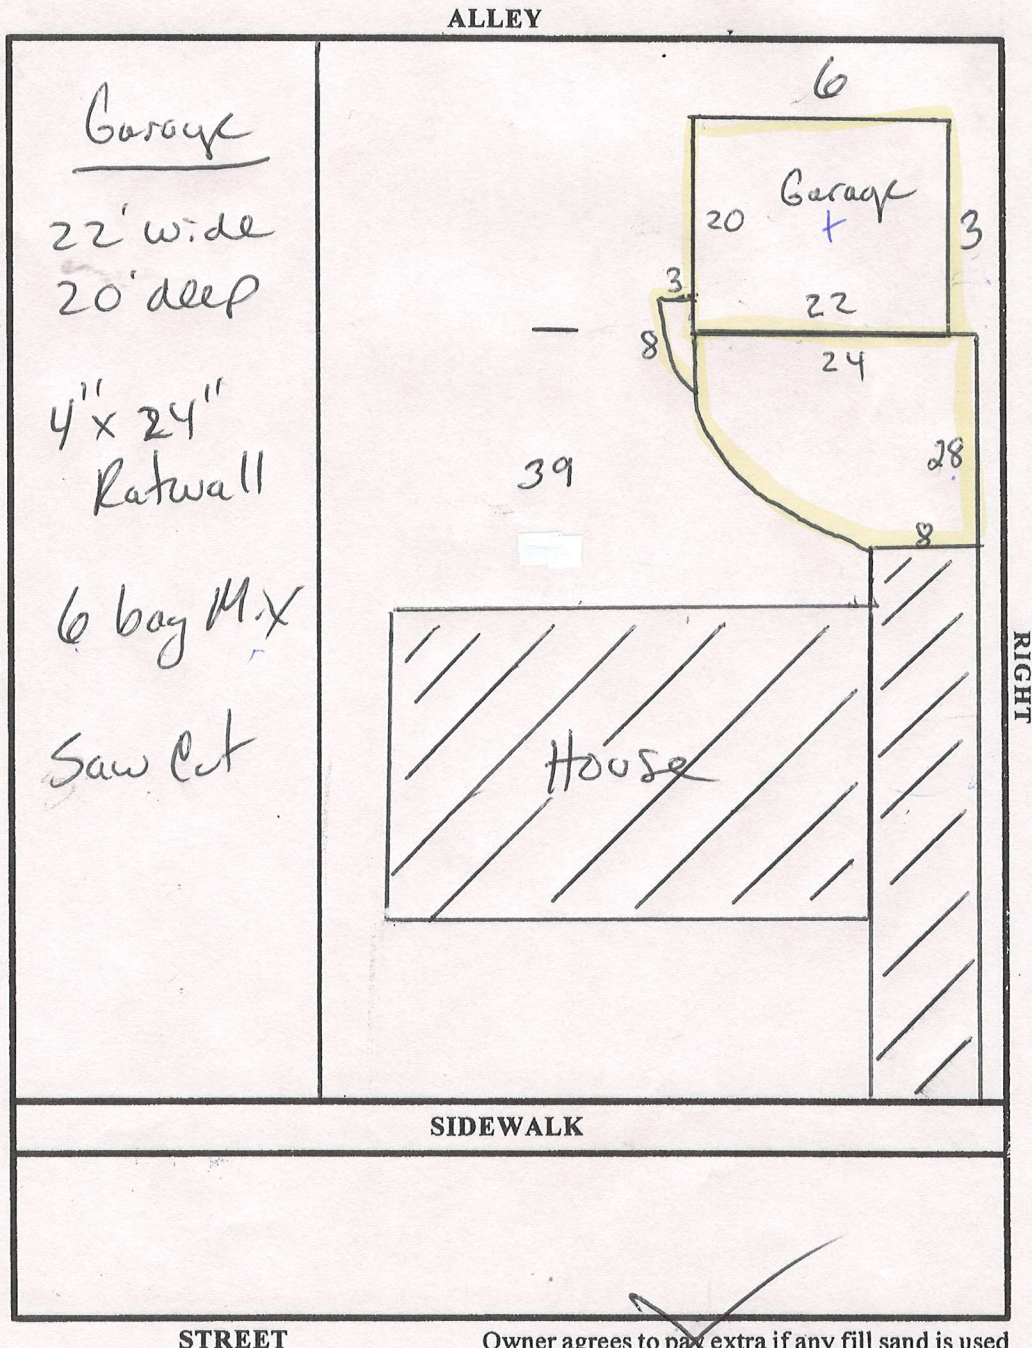 ALLEY
Garage
22' wide
20' deep
4" x 24"
Ratwall
6 bag Mix
Saw Cut
6
Garage
20
3
3
22
8
24
39
28
8
House
RIGHT
SIDEWALK
STREET
Owner agrees to pay extra if any fill sand is used